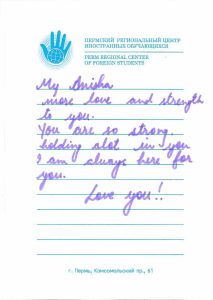 ПЕРМСКИЙ РЕГИОНАЛЬНЫЙ ЦЕНТР
ИНОСТРАННЫХ ОБУЧАЮЩИХСЯ
PERM REGIONAL CENTER
OF FOREIGN STUDENTS
My Anisha
more love and strength
to you.
You are so strong.
holding alot in you
I am always here for
you.
Love you!!
г. Пермь, Комсомольский пр., 61